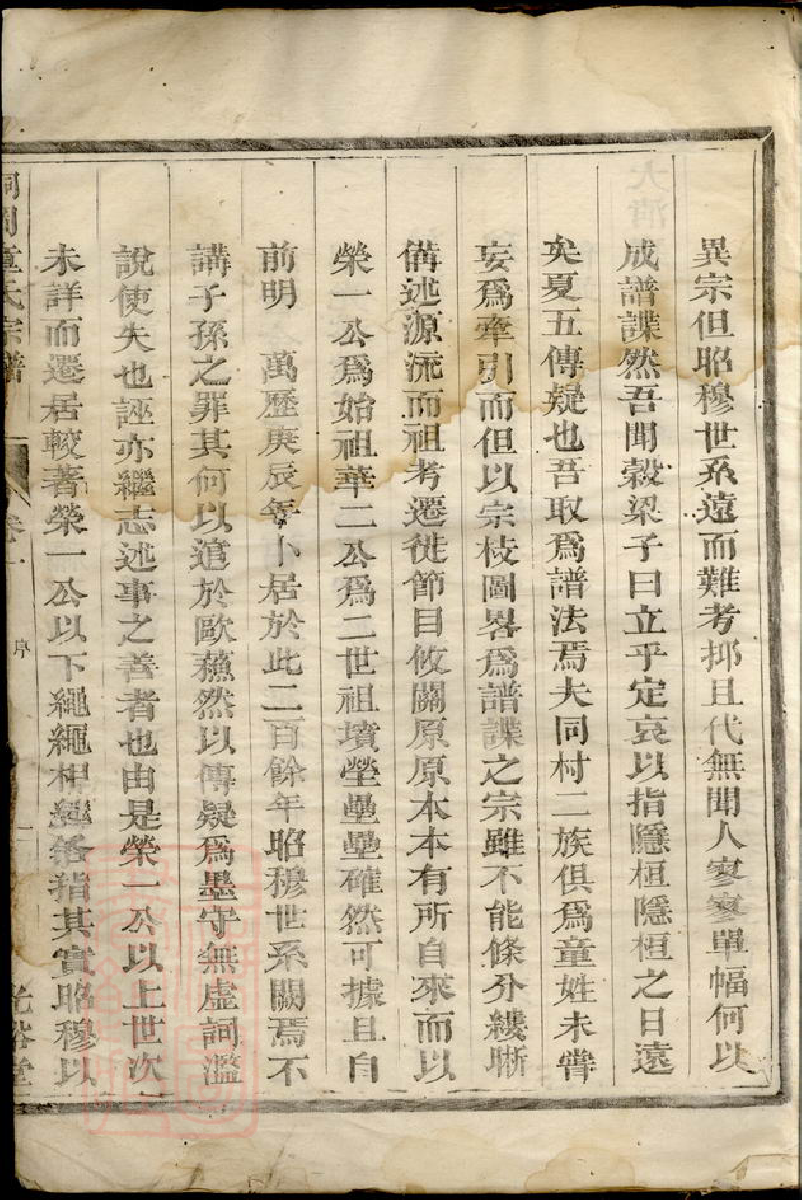 異宗但昭穆世系遠而難考抑且代無聞人寥寥單幅何以
成譜諜然吾聞穀梁子曰立乎定哀以指隱桓隱桓之日遠
矣夏五傳疑也吾取為譜法焉夫同村二族俱為童姓未嘗
妄為牽引而但以宗枝圖畧為譜諜之宗雖不能條分縷晰
備述源流而祖考遷徙節目攸關原原本本有所自來而以
榮一公為始祖華二公為二世祖墳塋壘壘確然可據且自
前明 萬歷庚辰年卜居於此二百餘年昭穆世系闕焉不
講子孫之罪其何以逭於歐蘓然以傳疑為墨守無虛詞濫
說使失也誣亦繼志述事之善者也由是榮一公以上世次
未詳而遷居較著榮一公以下繩繩相繼循指其實昭穆以
童氏宗譜 卷一 序 一 光裕堂